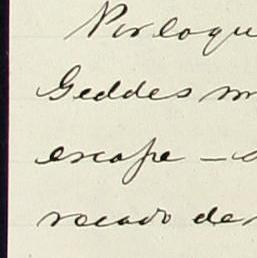 Por lo que
Geddes m
escape —
rocado de